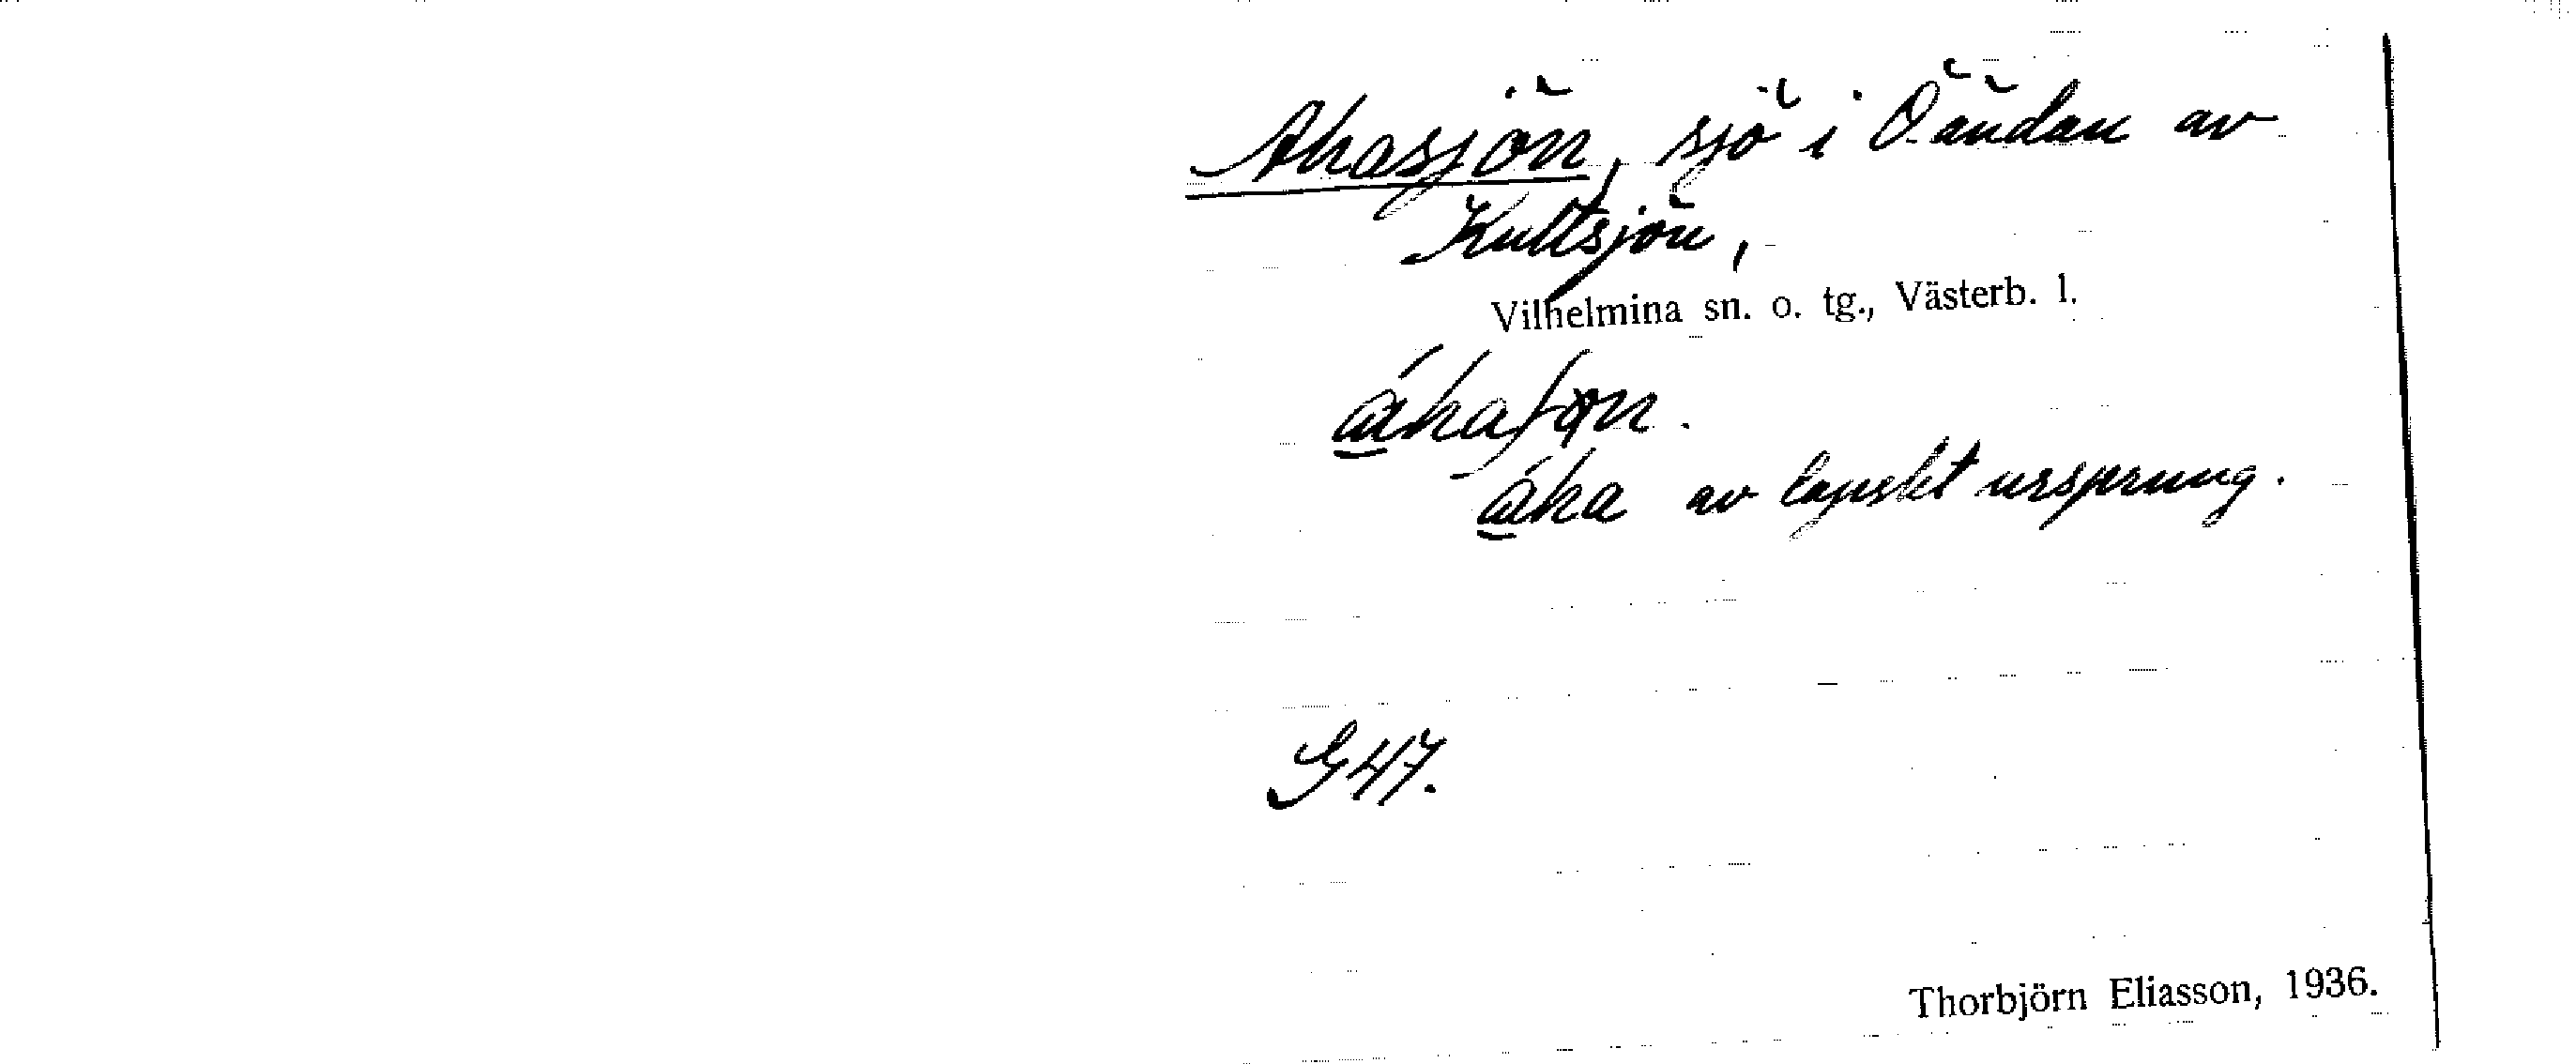 Akasjön, sjö i Ö. ändan av
Kultsjön,
Vilhelmina sn. o. tg., Västerb. l.
ákaʃøn.
áka av lapskt ursprung.
G 47.
Thorbjörn Eliasson, 1936.